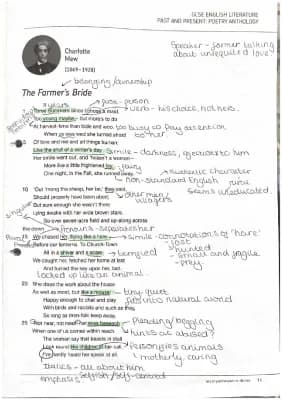 GCSE ENGLISH LITERATURE
PAST AND PRESENT: POETRY ANTHOLOGY
Charlotte
Mew
(1869–1928)
Speaker - farmer talking
about unrequited love
belonging/ownership
The Farmer's Bride
pause - person
Three Summers since I chose a maid,
verb - his choice, not hers.
Too young maybe – but more's to do
At harvest-time than bide and woo.
too busy to pay attention
to her.
When us was wed she turned afraid
5 Of love and me and all things human;
Like the shut of a winter's day.
Simile - darkness,
to him
Her smile went out, and 'twasn't a woman–
More like a little frightened fay.
fairy
One night, in the Fall, she runned away.
authentic character
non-standard English
Seems uneducated.
10 'Out 'mong the sheep, her be,' they said,
other men/
villagers
Should properly have been abed;
But sure enough she wasn't there
Lying awake with her wide brown stare.
So over seven-acre field and up-along across
the down
Pronouns -
15 We chased her, flying like a hare
Simile - connotations of 'hare'
- fast
- hunted
- small and fragile
- prey
Before our lanterns. To Church-Town
All in a shiver and a scare
terrified
We caught her, fetched her home at last
And turned the key upon her, fast.
locked up like an animal.
20 She does the work about the house
As well as most, but like a mouse:
tiny, quiet
Happy enough to chat and play
fits into natural world
With birds and rabbits and such as they,
So long as men-folk keep away.
25 'Not near, not near!' her eyes beseech
Pleading/begging
When one of us comes within reach.
hints at abused?
The women say that beasts in stall
Look round like children at her call.
Personifies animals
motherly, caring
I've hardly heard her speak at all.
Italics - all about him
emphasis
selfish/self-centred
11